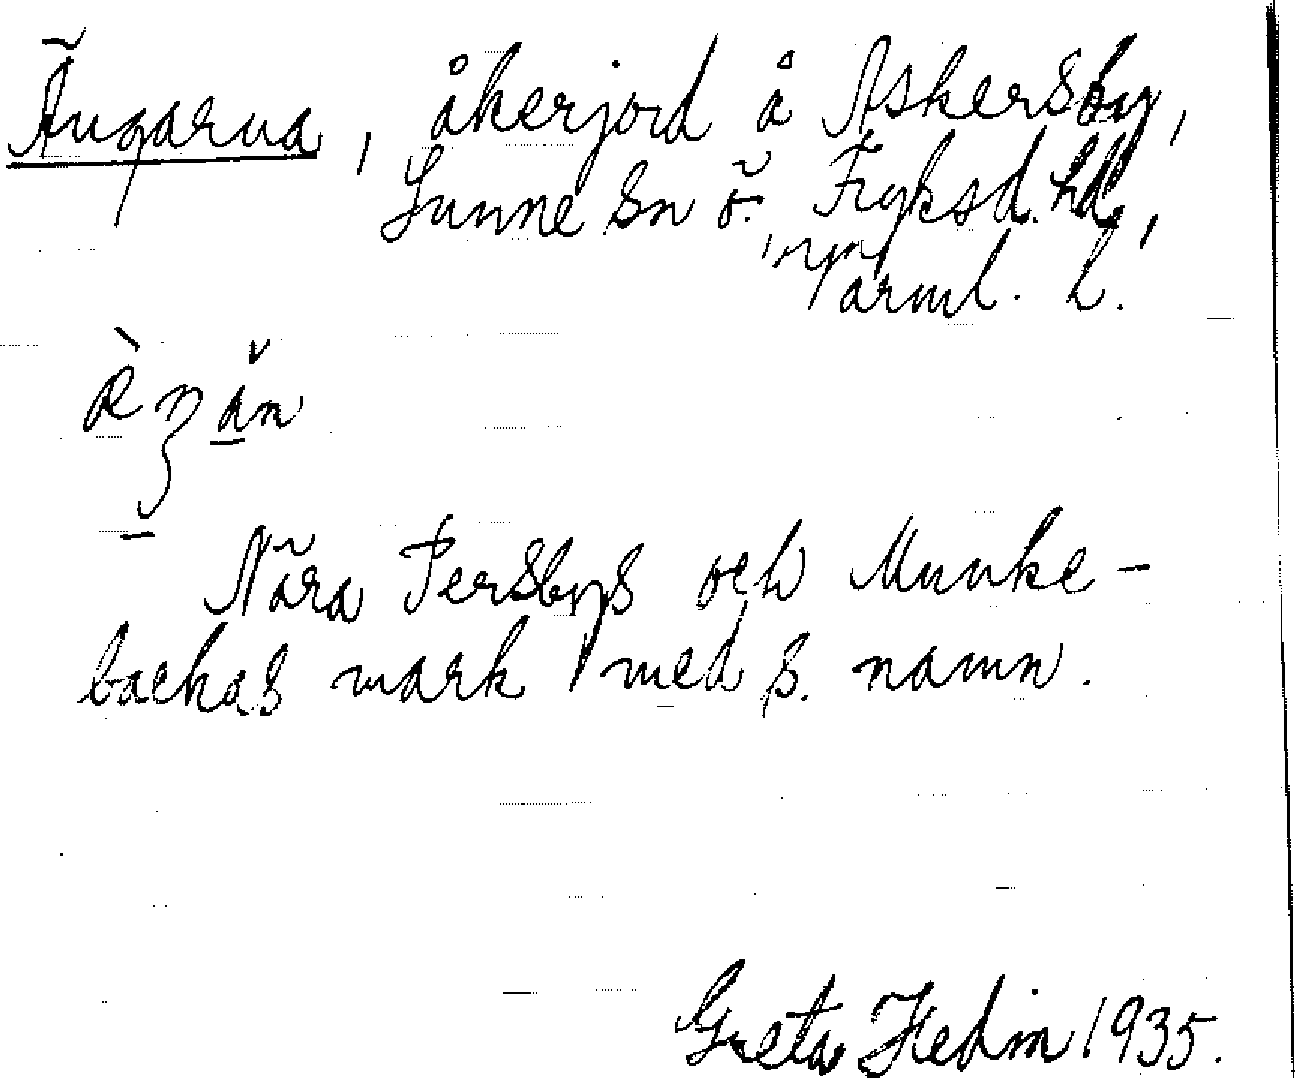 Ängarna, åkerjord å Askersby,
Sunne sn Ö. Fryksd. hd,
Värml. l.
Nära Persbys och Munke-
backas mark med s. namn.
Greta Hedin 1935.